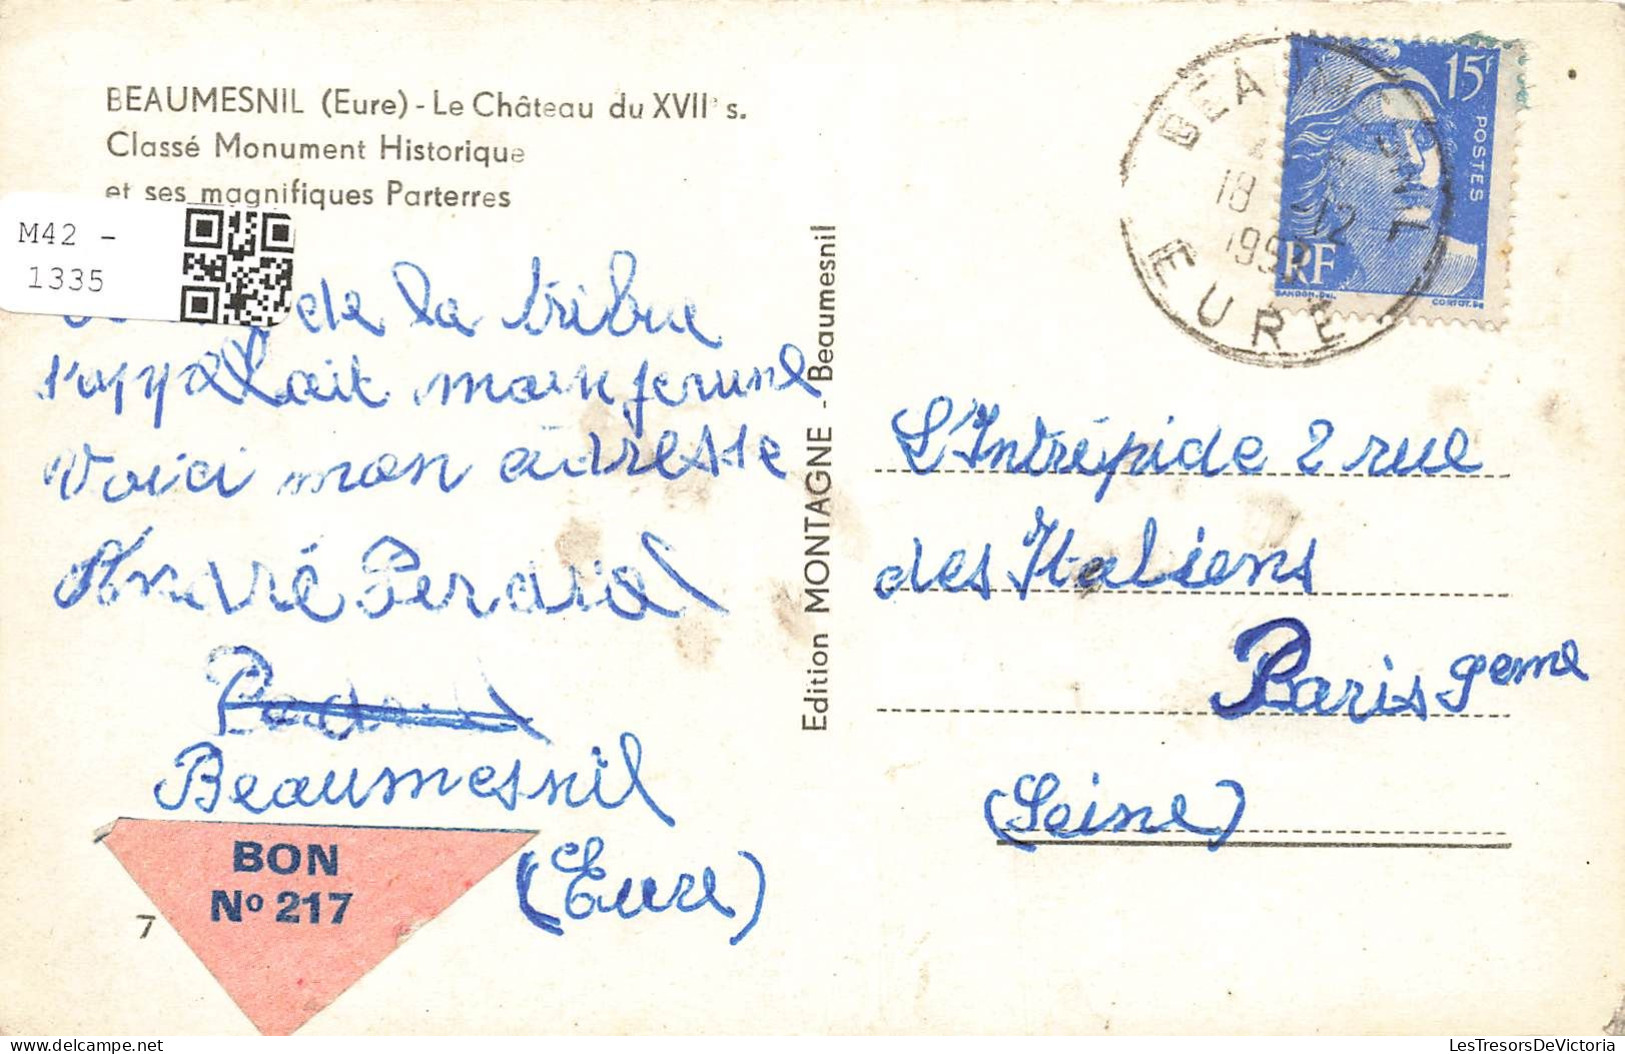 BEAUMESNIL (Eure) - Le Château du XVIIe s.
Classé Monument Historique
et ses magnifiques Parterres
M42 -
1335
de la tribue
s'appelait
Voici mon adresse
André
Beaumesnil
(Eure)
BON
No 217
7
Edition MONTAGNE - Beaumesnil
BEAUMESNIL
18 -12
EURE
15F
POSTES
RF
GANDON.Del.
L'Intrépide 2 rue
des Italiens
Paris 9eme
(Seine)
LesTresorsDeVictoria
delcampe.net